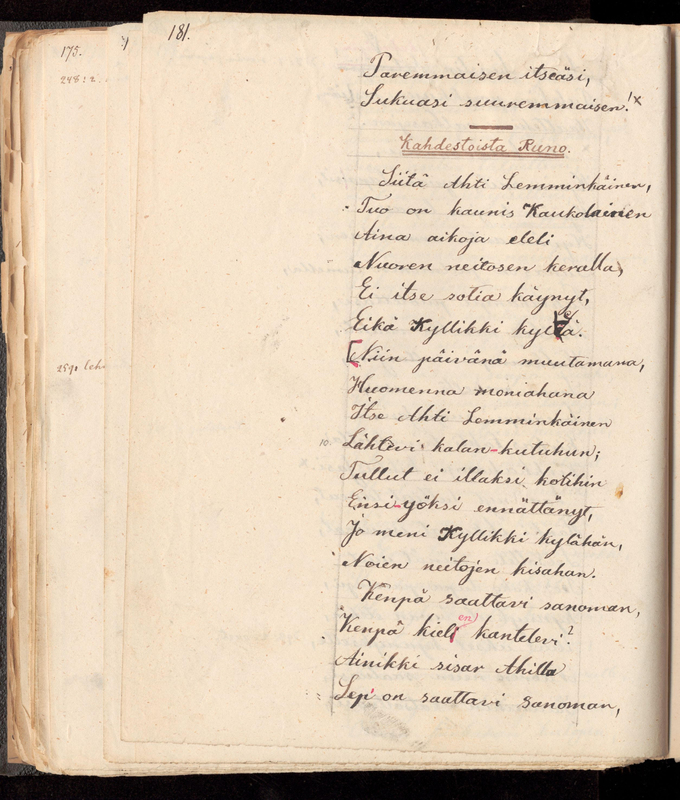 181.
175.
248:2.
Paremmaisen itseäsi,
Sukuasi suuremmaisen!
Kahdestoista Runo.
Siitä Ahti Lemminkäinen,
Tuo on kaunis Kaukolainen
Aina aikoja eleli
Nuoren neitosen keralla,
Ei itse sotia käynyt,
Eikä Kyllikki kyleä.
Niin päivänä muutamana,
Huomenna moniahana
Itse Ahti Lemminkäinen
10. Lähtevi kalan-kutuhun;
Tullut ei illaksi kotihin
Ensi-yöksi ennättänyt,
Jo meni Kyllikki kylähän,
Noien neitojen kisahan.
Kenpä saattavi sanoman,
Kenpä kielen kantelevi?
Ainikki sisar Ahilla
Se on saattavi sanoman,